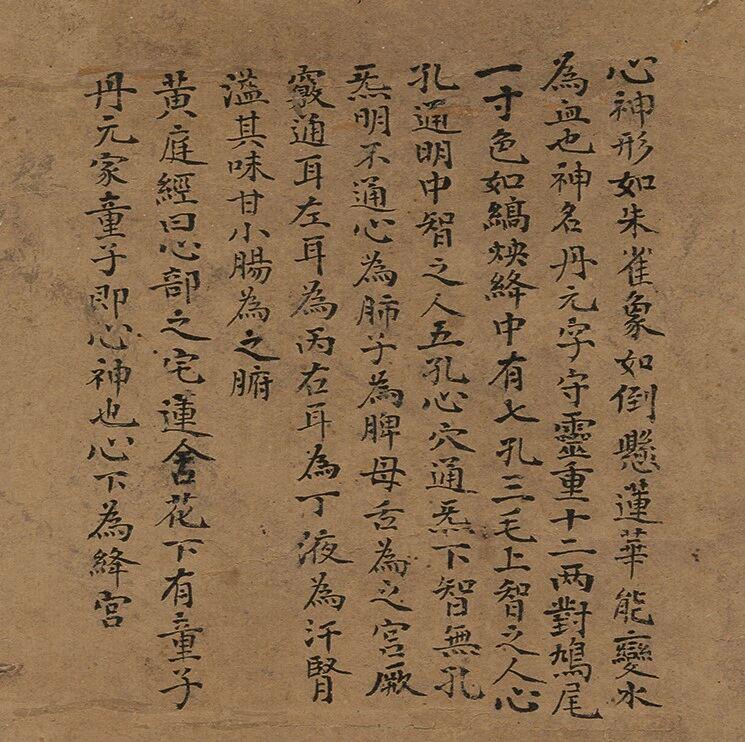 心神形如朱雀象如倒懸蓮華能變水
為血也神名丹元字守靈重十二两對鳩尾
一寸色如縞映絳中有七孔三毛上智之人心
孔通明中智之人五孔心穴通炁下智無孔
炁明不通心為肺子為脾母舌為之宮厥
竅通耳左耳為丙右耳為丁液為汗腎
溢其味甘小腸為之腑
黃庭經曰心部之宅蓮含花下有童子
丹元家童子即心神也心下為絳宮